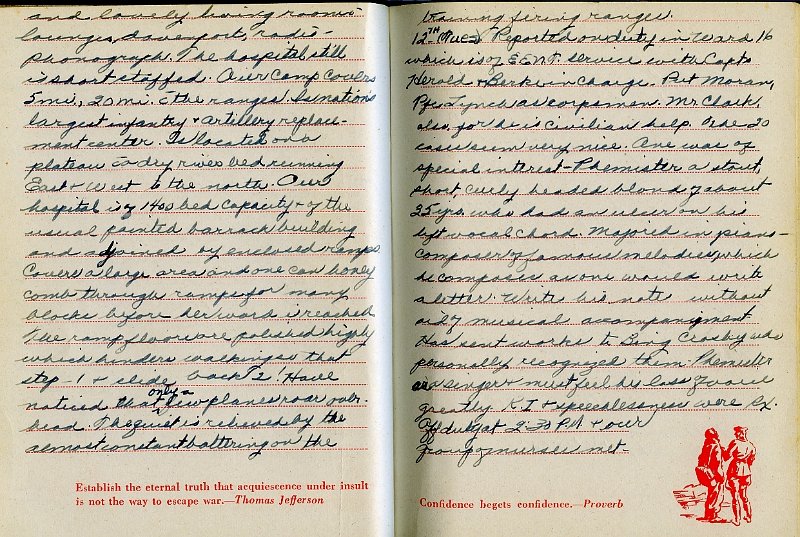 and lovely living rooms
lounges, davenports, radio-
phonograph. The hospital still
is short staffed. Our camp covers
5 mi., 20 mi. c̄ the ranges. Is nation's
largest infantry + artillery replace-
ment center. Is located on a
plateau c̄ dry river bed running
East + West to the north. Our
hospital is of 1400 bed capacity + of the
usual painted barrack building
and joined by enclosed ramps.
Covers a large area and one can honey
comb through ramps for many
blocks before her work is reached.
The ramp floors are polished highly
which hinders walking so that
step 1 + slide back 2! Have
noticed that only a few planes roar over-
head. The quiet is relieved by the
almost constant battering on the
Establish the eternal truth that acquiescence under insult
is not the way to escape war.—Thomas Jefferson
training firing ranges.
12TH Tues Reported on duty in Ward 16
which is of EENT service with Capts
Herold + Berke in charge. Pvt Moran,
Pfc Lynch as corpsman. Mr Clark,
also, for he is civilian help. The 20
cases seem very nice. One was of
special interest - Phemister a stout,
short, curly headed blond of about
25 yrs who had an ulcer on his
left vocal chord. Majored in piano-
composer of famous melodies which
he composes as one would write
a letter. Writes his notes without
aid of musical accompaniment
Has sent works to Bing Crosby who
personally recognized them. Phemister
a singer + must feel his loss of voice
greatly. K I + speechlessness were Rx.
Off duty at 2:30 PM + our
group of nurses met
Confidence begets confidence.—Proverb